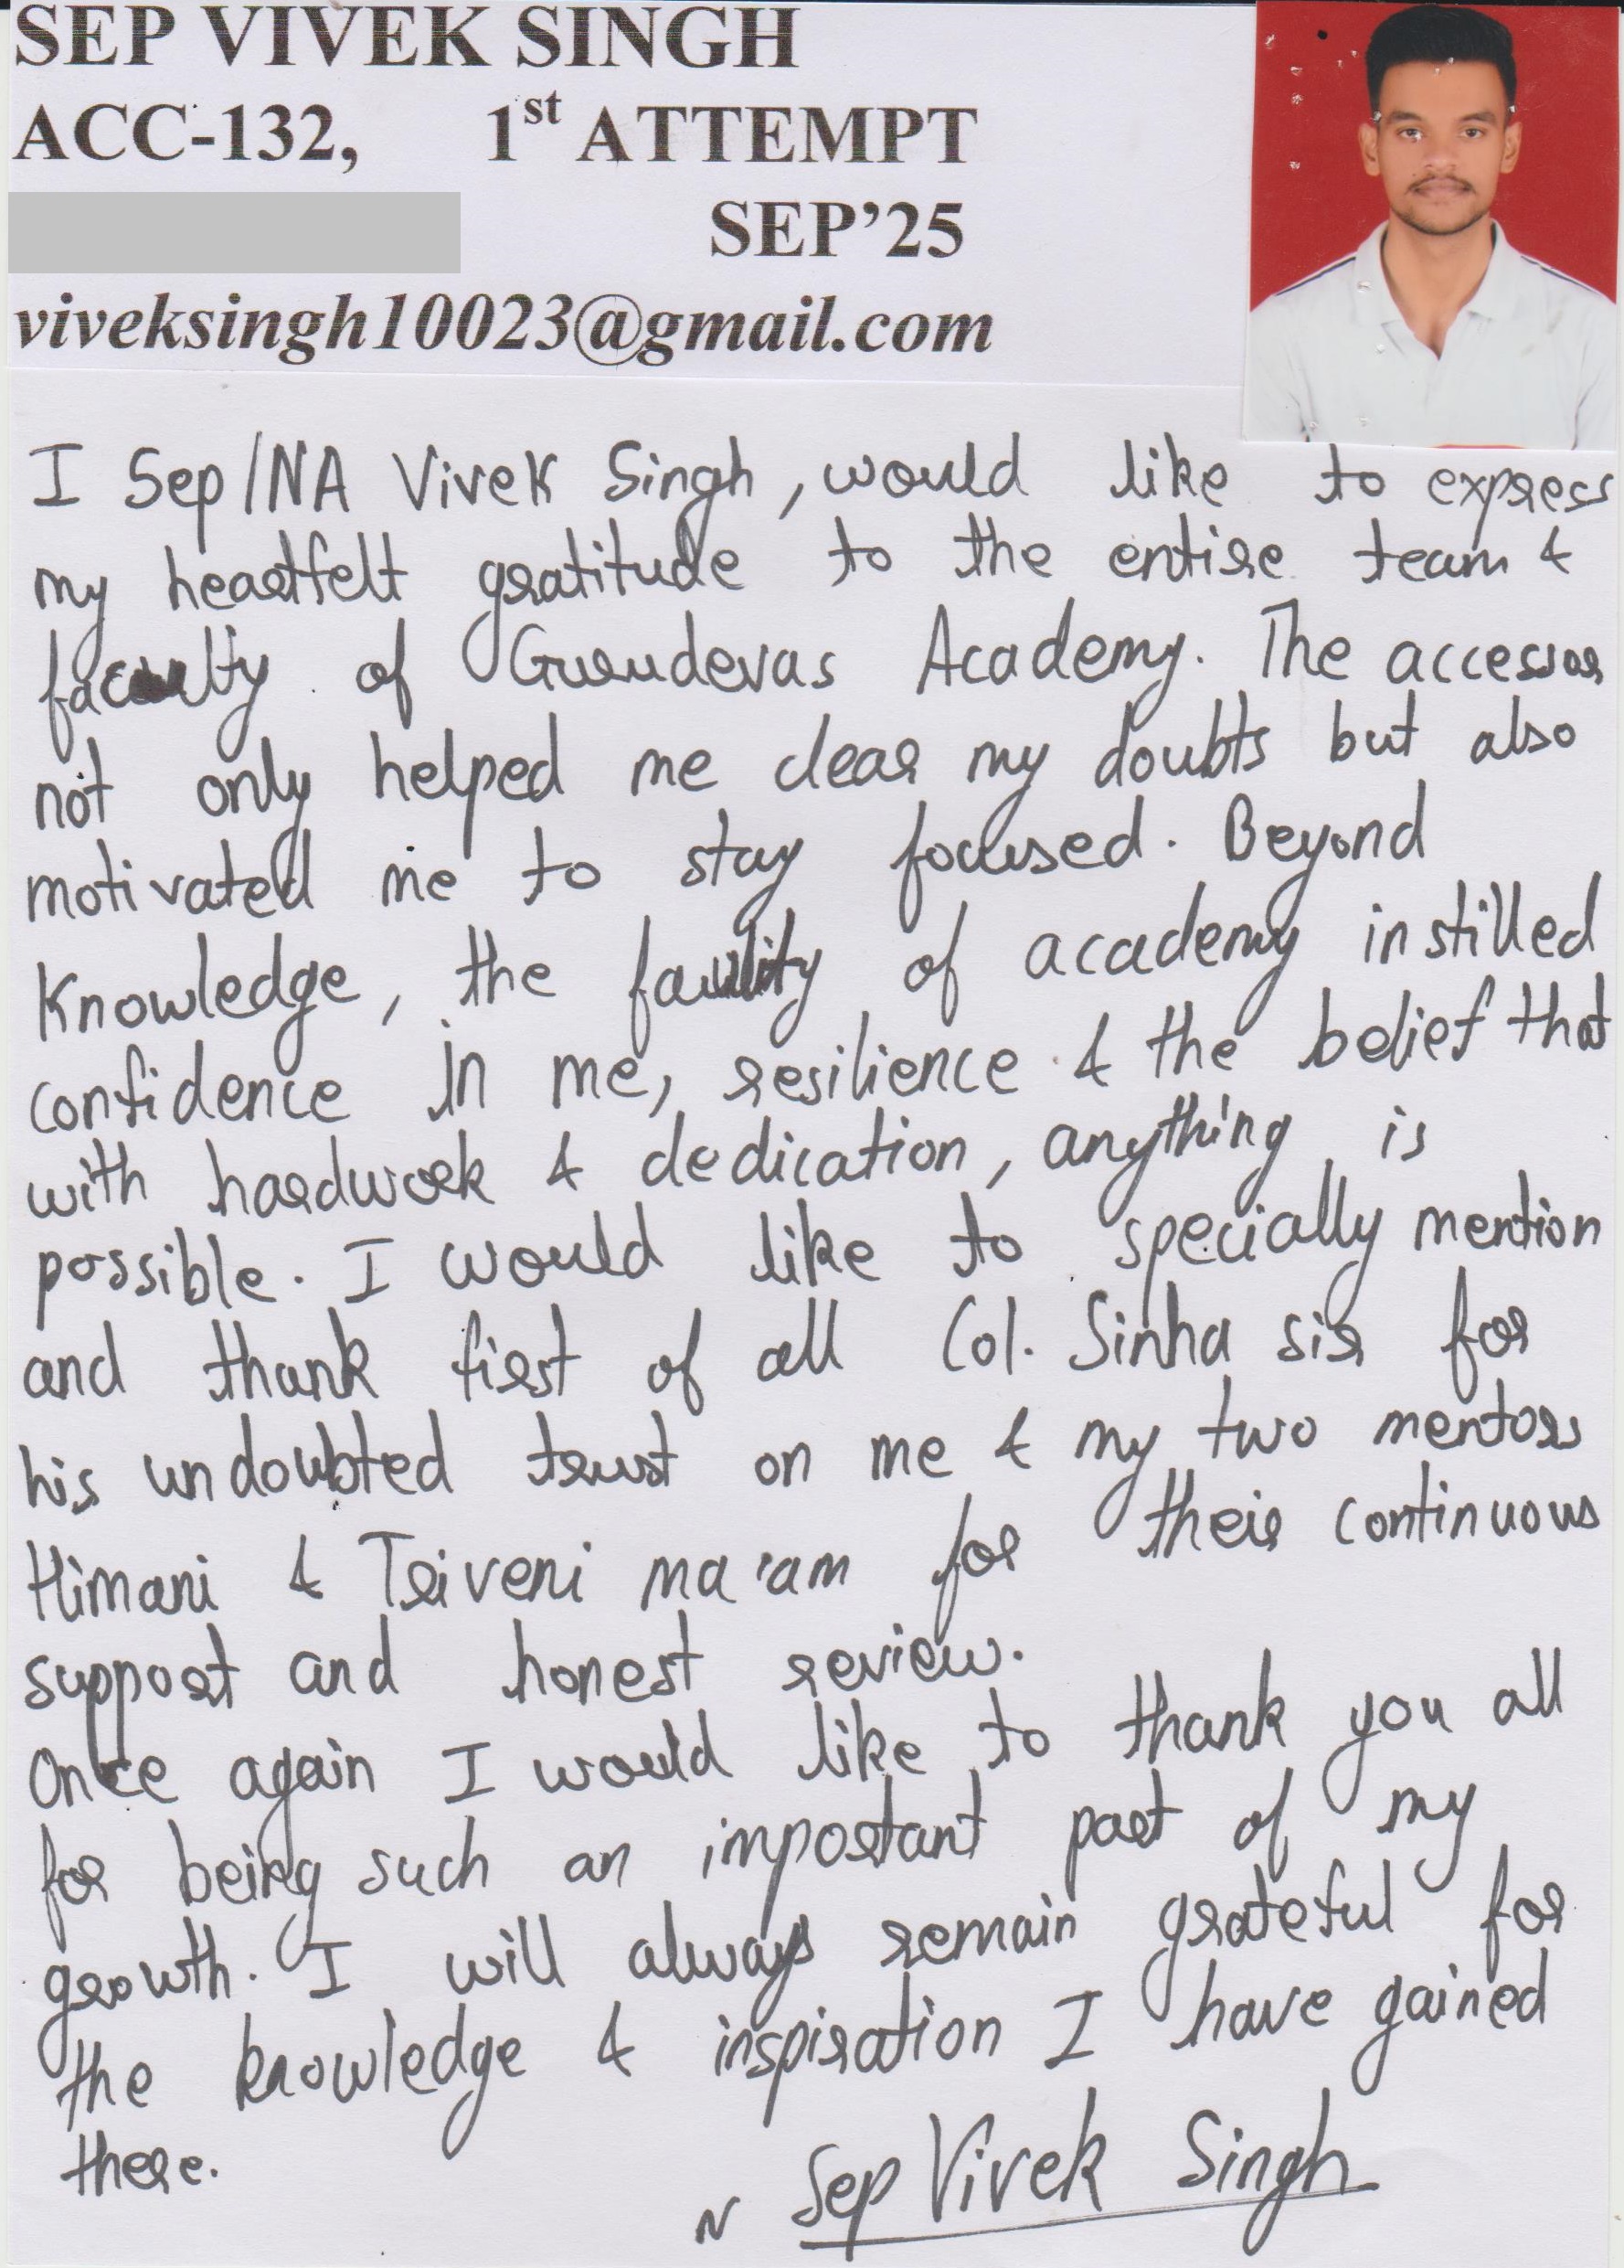 SEP VIVEK SINGH
ACC-132, 1st ATTEMPT
SEP'25
viveksingh10023@gmail.com
I Sep/NA Vivek Singh, would like to express
my heartfelt gratitude to the entire team &
faculty of Gurudevas Academy. The accessor
not only helped me clear my doubts but also
motivated me to stay focused. Beyond
Knowledge, the faculity of academy instilled
confidence in me, resilience & the belief that
with hardwork & dedication, anything is
possible. I would like to specially mention
and thank first of all Col. Sinha sir for
his undoubted trust on me & my two mentors
Himani & Triveni ma'am for their continuous
support and honest review.
Once again I would like to thank you all
for being such an important part of my
growth. I will always remain grateful for
the knowledge & inspiration I have gained
there.
~ Sep Vivek Singh